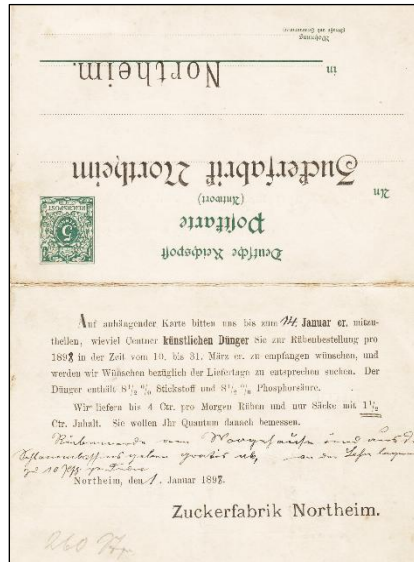 Wohnung
(Straße und Hausnummer)
in Northeim.
Zuckerfabrik Northeim
An
(Antwort)
Postkarte
Deutsche Reichspost
REICHSPOST
5
Auf anhängender Karte bitten uns bis zum 14. Januar cr. mitzu-
theilen, wieviel Centner künstlichen Dünger Sie zur Rübenbestellung pro
1898 in der Zeit vom 10. bis 31. März cr. zu empfangen wünschen, und
werden wir Wünschen bezüglich der Liefertage zu entsprechen suchen. Der
Dünger enthält 8½ % Stickstoff und 8½ % Phosphorsäure.
Wir liefern bis 4 Ctr. pro Morgen Rüben und nur Säcke mit 1½
Ctr. Inhalt. Sie wollen Ihr Quantum danach bemessen.
gratis ab,
Northeim, den 1. Januar 1898.
Zuckerfabrik Northeim.